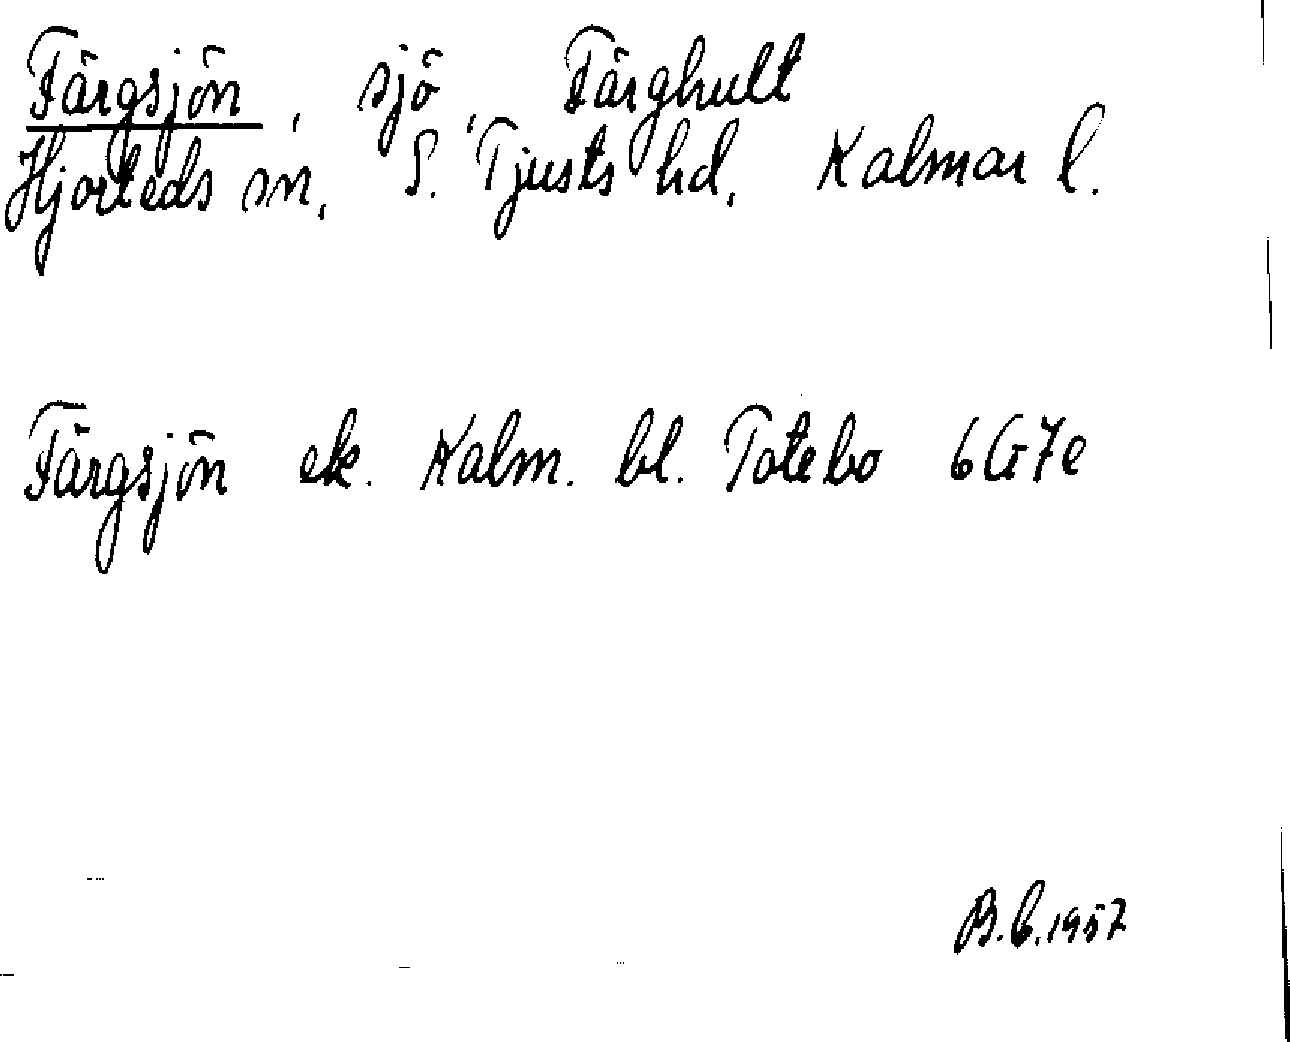 Färgsjön, sjö, Färghult
Hjorteds sn. S. Tjusts hd. Kalmar l.
Färgsjön ek. Kalm. bl. Totebo 6G7e
B.C. 1957